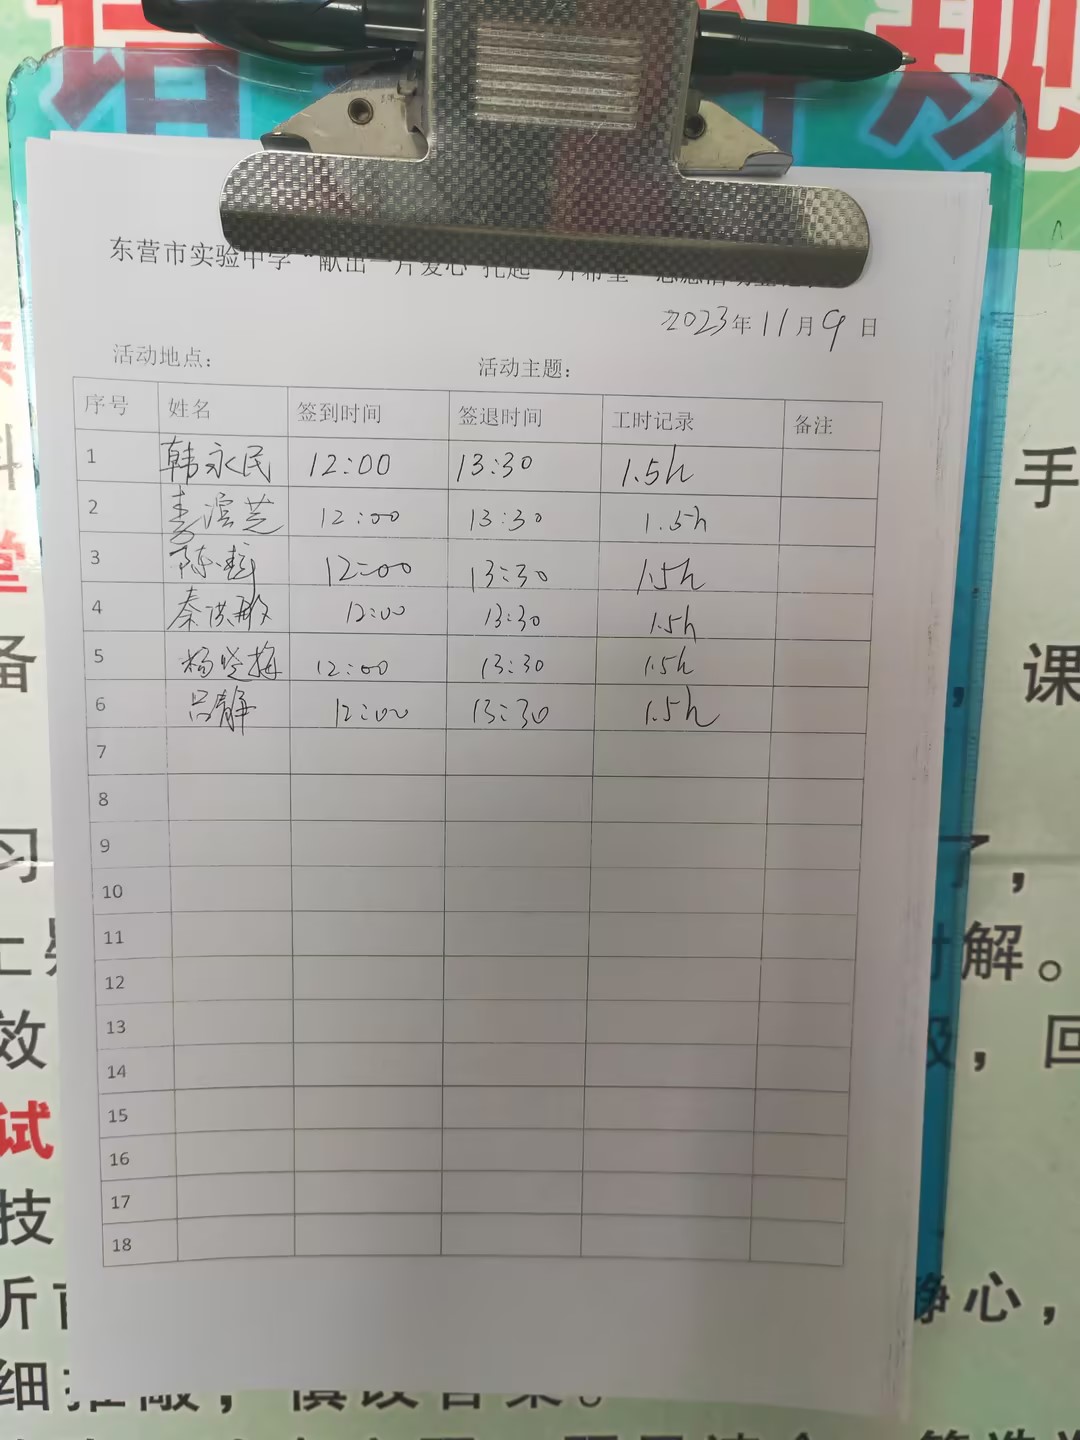 东营市实验中学“献出一片爱心 托起一片希望”志愿活动
2023年11月9日
活动地点： 活动主题：
序号 姓名 签到时间 签退时间 工时记录 备注
1 韩永民 12:00 13:30 1.5h
2 李滨芝 12:00 13:30 1.5h
3 陈 12:00 13:30 1.5h
4 秦洪敏 12:00 13:30 1.5h
5 杨晓梅 12:00 13:30 1.5h
6 吕静 12:00 13:30 1.5h
7
8
9
10
11
12
13
14
15
16
17
18
手
课
备
习
了，
解。
效
级，回
试
技
析
静心，
细推敲，慎改答案。